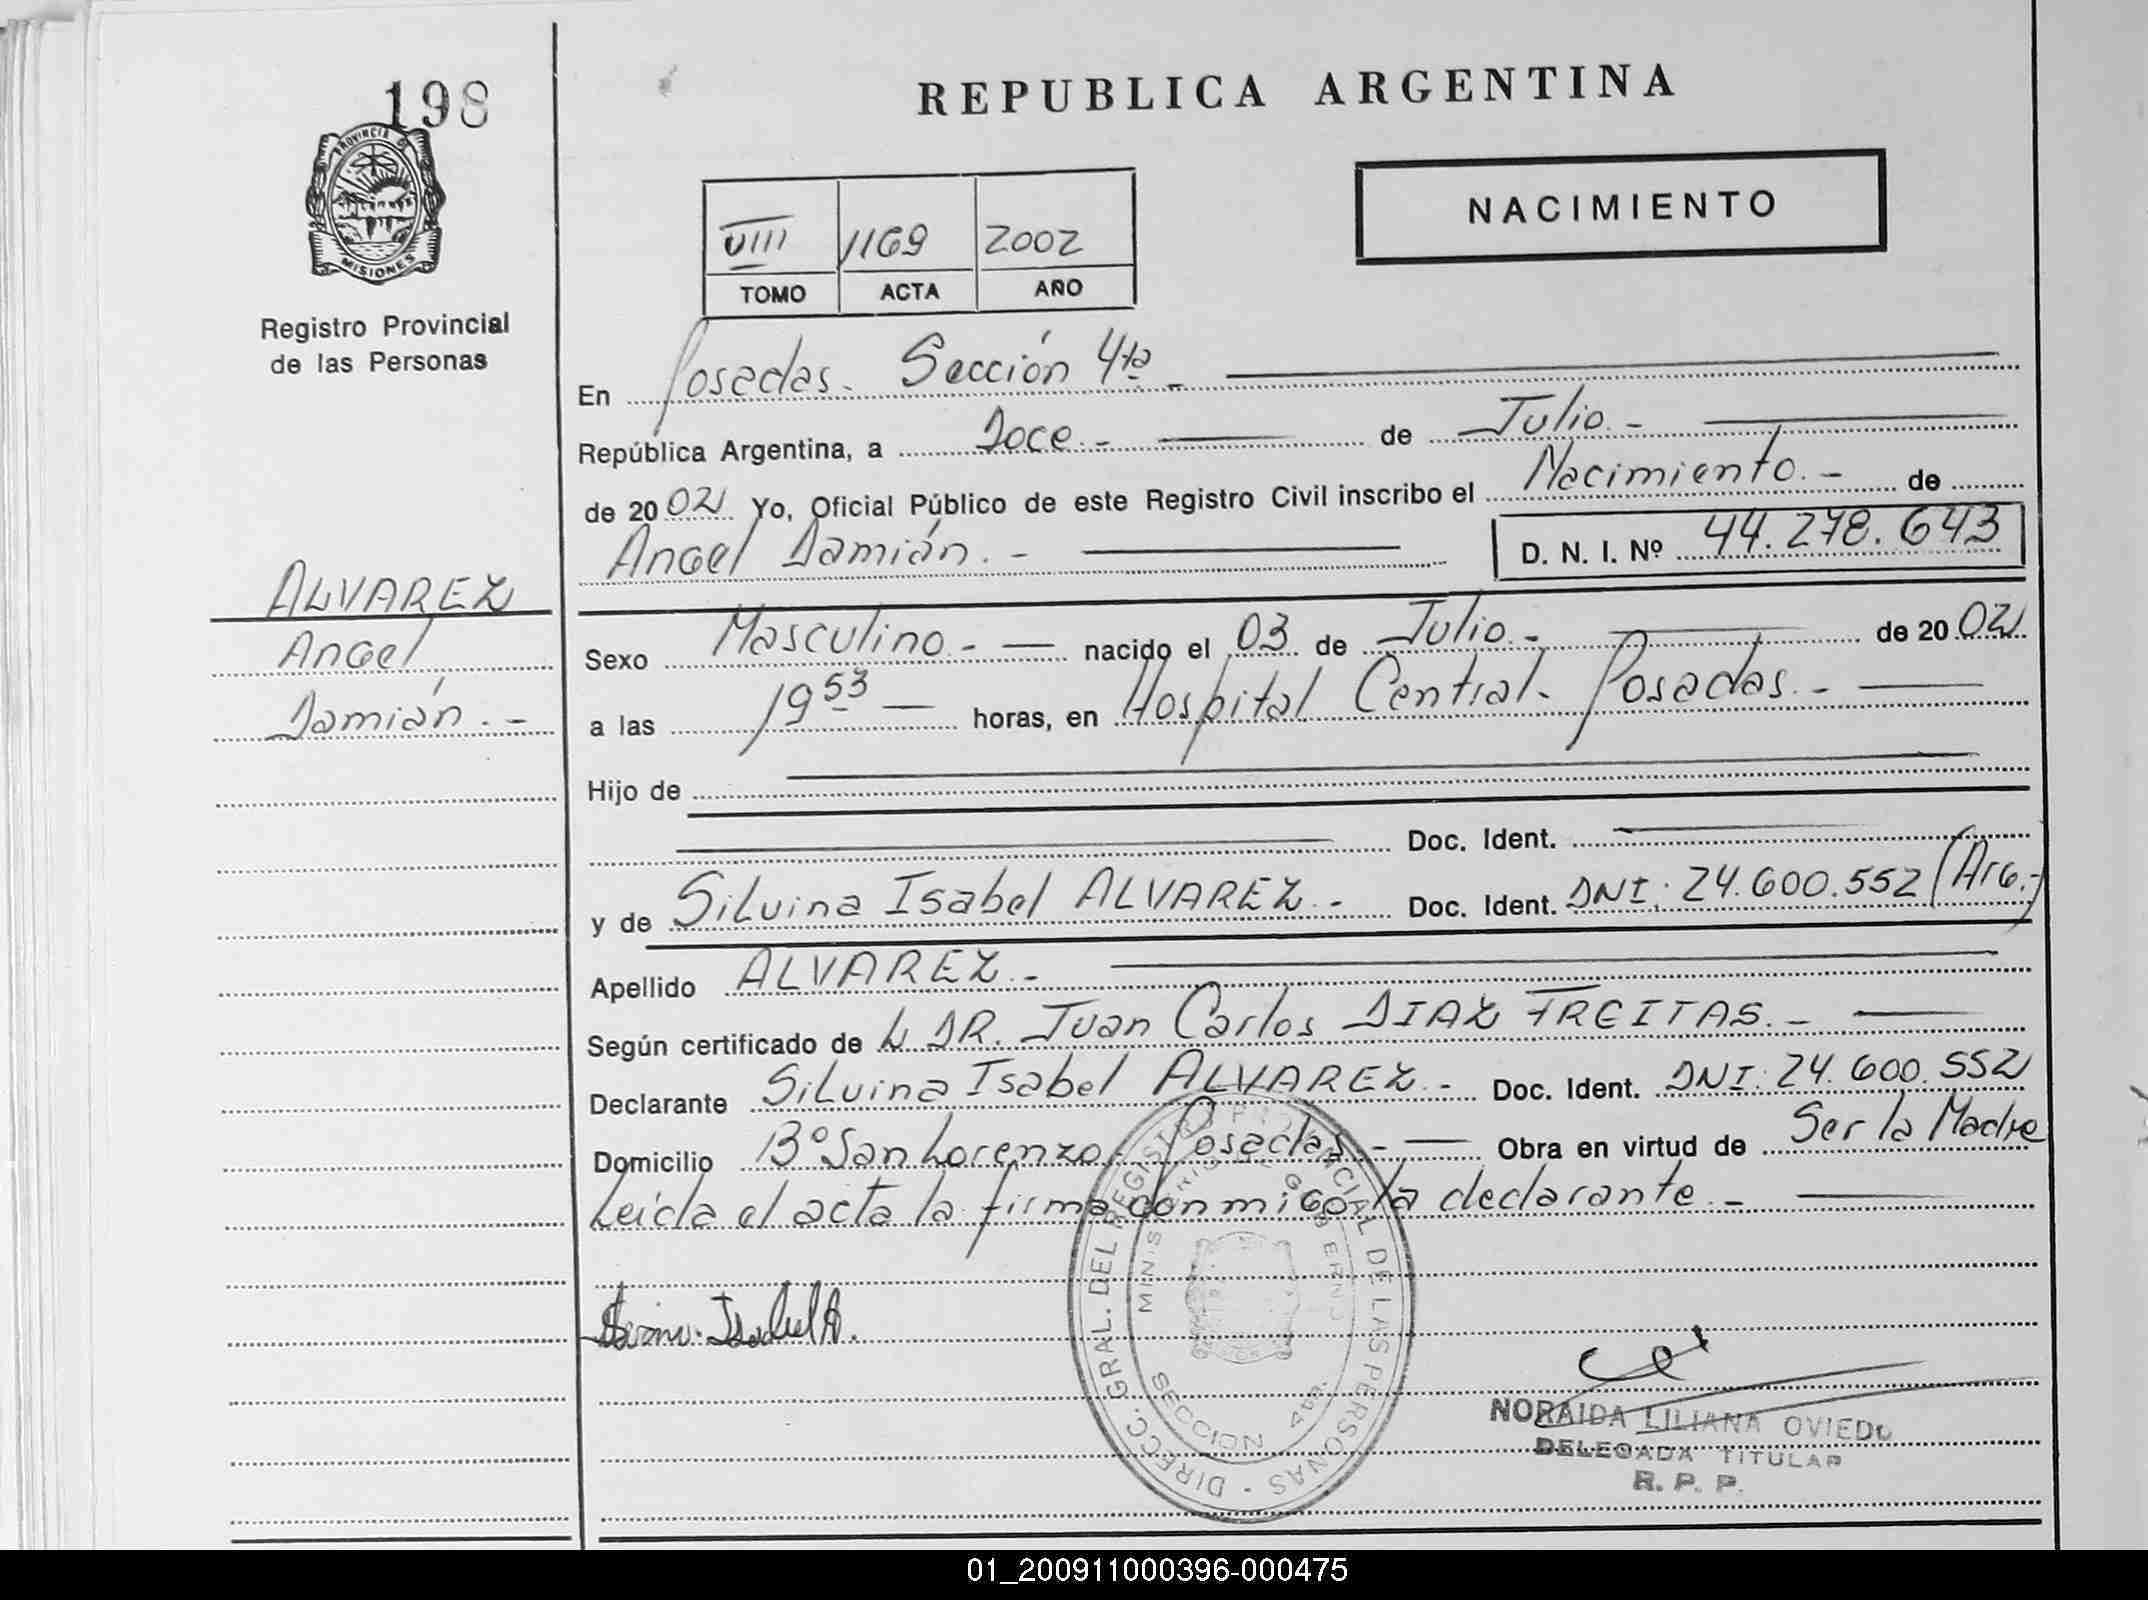 198
PROVINCIA DE
MISIONES
Registro Provincial
de las Personas
REPUBLICA ARGENTINA
NACIMIENTO
VIII 1169 2002
TOMO ACTA AÑO
En Posadas. Sección 4ta -
República Argentina, a Doce.- de Julio.-
de 2002 Yo, Oficial Público de este Registro Civil inscribo el Nacimiento.- de
Angel Damián.- D. N. I. Nº 44.278.643
ALVAREZ
Angel
Damián.-
Sexo Masculino.- nacido el 03 de Julio.- de 2002
a las 19 53 horas, en Hospital Central. Posadas.-
Hijo de
Doc. Ident.
y de Silvina Isabel ALVAREZ.- Doc. Ident. DNI: 24.600.552 (Arg.-)
Apellido ALVAREZ.-
Según certificado de L DR. Juan Carlos DIAZ FREITAS.-
Declarante Silvina Isabel ALVAREZ.- Doc. Ident. DNI: 24.600.552
Domicilio Bº San Lorenzo. Posadas.- Obra en virtud de Ser la Madre
Leída el acta la firma conmigo la declarante.-
Isabel A.
DIRECC. GRAL. DEL REGISTRO PROVINCIAL DE LAS PERSONAS
MINISTERIO DE GOBIERNO
SECCION 4ta.
NORAIDA LILIANA OVIEDO
DELEGADA TITULAR
R. P. P.
01_200911000396-000475